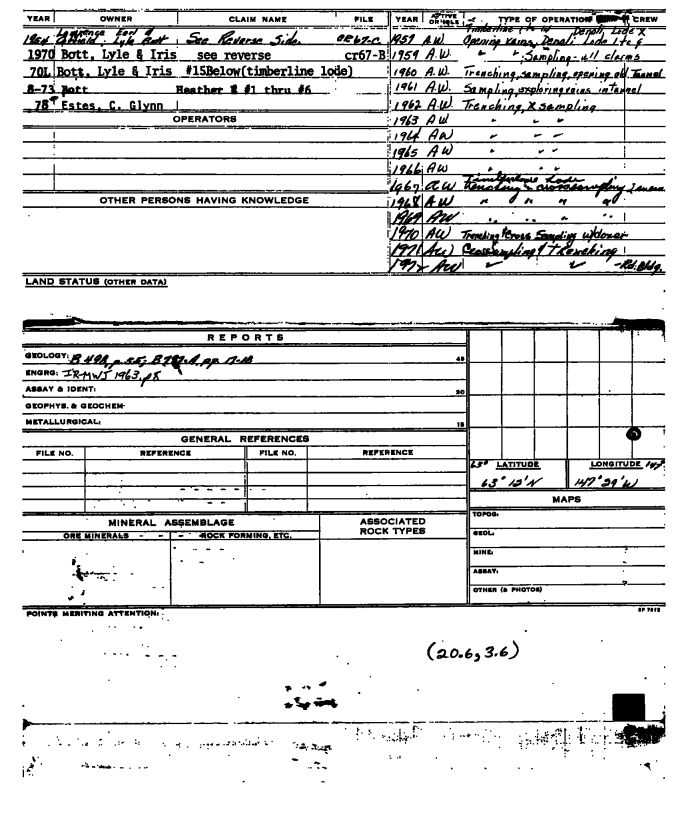 YEAR OWNER CLAIM NAME FILE YEAR ACTIVE OR IDLE TYPE OF OPERATION CREW
Timberline Denali Lode
1954 Lawrence Earl & Lyle Bott See Reverse Side. CR67-C 1957 A.W. Opening veins, Denali Lode 1 to 6
1970 Bott, Lyle & Iris see reverse cr67-B 1959 A.W. " " Sampling - all claims
70L Bott, Lyle & Iris #15Below(timberline lode) 1960 A.W. Trenching, sampling, opening old Tunnel
8-73 Bott Heather #1 thru #6 1961 A.W. Sampling, exploring veins in tunnel
78 Estes, C. Glynn 1962 A.W. Trenching, & sampling
OPERATORS 1963 AW " " "
1964 AW " " "
1965 AW " " "
1966 AW " "
Timberline Lode
1967 AW Trenching & crosssampling
OTHER PERSONS HAVING KNOWLEDGE 1968 AW " " " "
1969 AW " " " "
1970 AW Trenching & Cross Sampling w/dozer
1971 AW Crossampling & trenching
1972 AW " " -Rd. Bldg.
LAND STATUS (OTHER DATA)
REPORTS
GEOLOGY: B 498, p. 55; B 787-A, pp. 17-18 45
ENGRG: IR-MWJ 1963, p8
ASSAY & IDENT: 30
GEOPHYS. & GEOCHEM
METALLURGICAL: 15
GENERAL REFERENCES
FILE NO. REFERENCE FILE NO. REFERENCE
65° LATITUDE LONGITUDE 147°
63° 12' N 147° 29' W
MAPS
MINERAL ASSEMBLAGE ASSOCIATED ROCK TYPES
TOPOG:
ORE MINERALS ROCK FORMING, ETC.
GEOL:
MINE:
ASSAY:
OTHER (& PHOTOS)
POINTS MERITING ATTENTION: SP 7512
(20.6, 3.6)